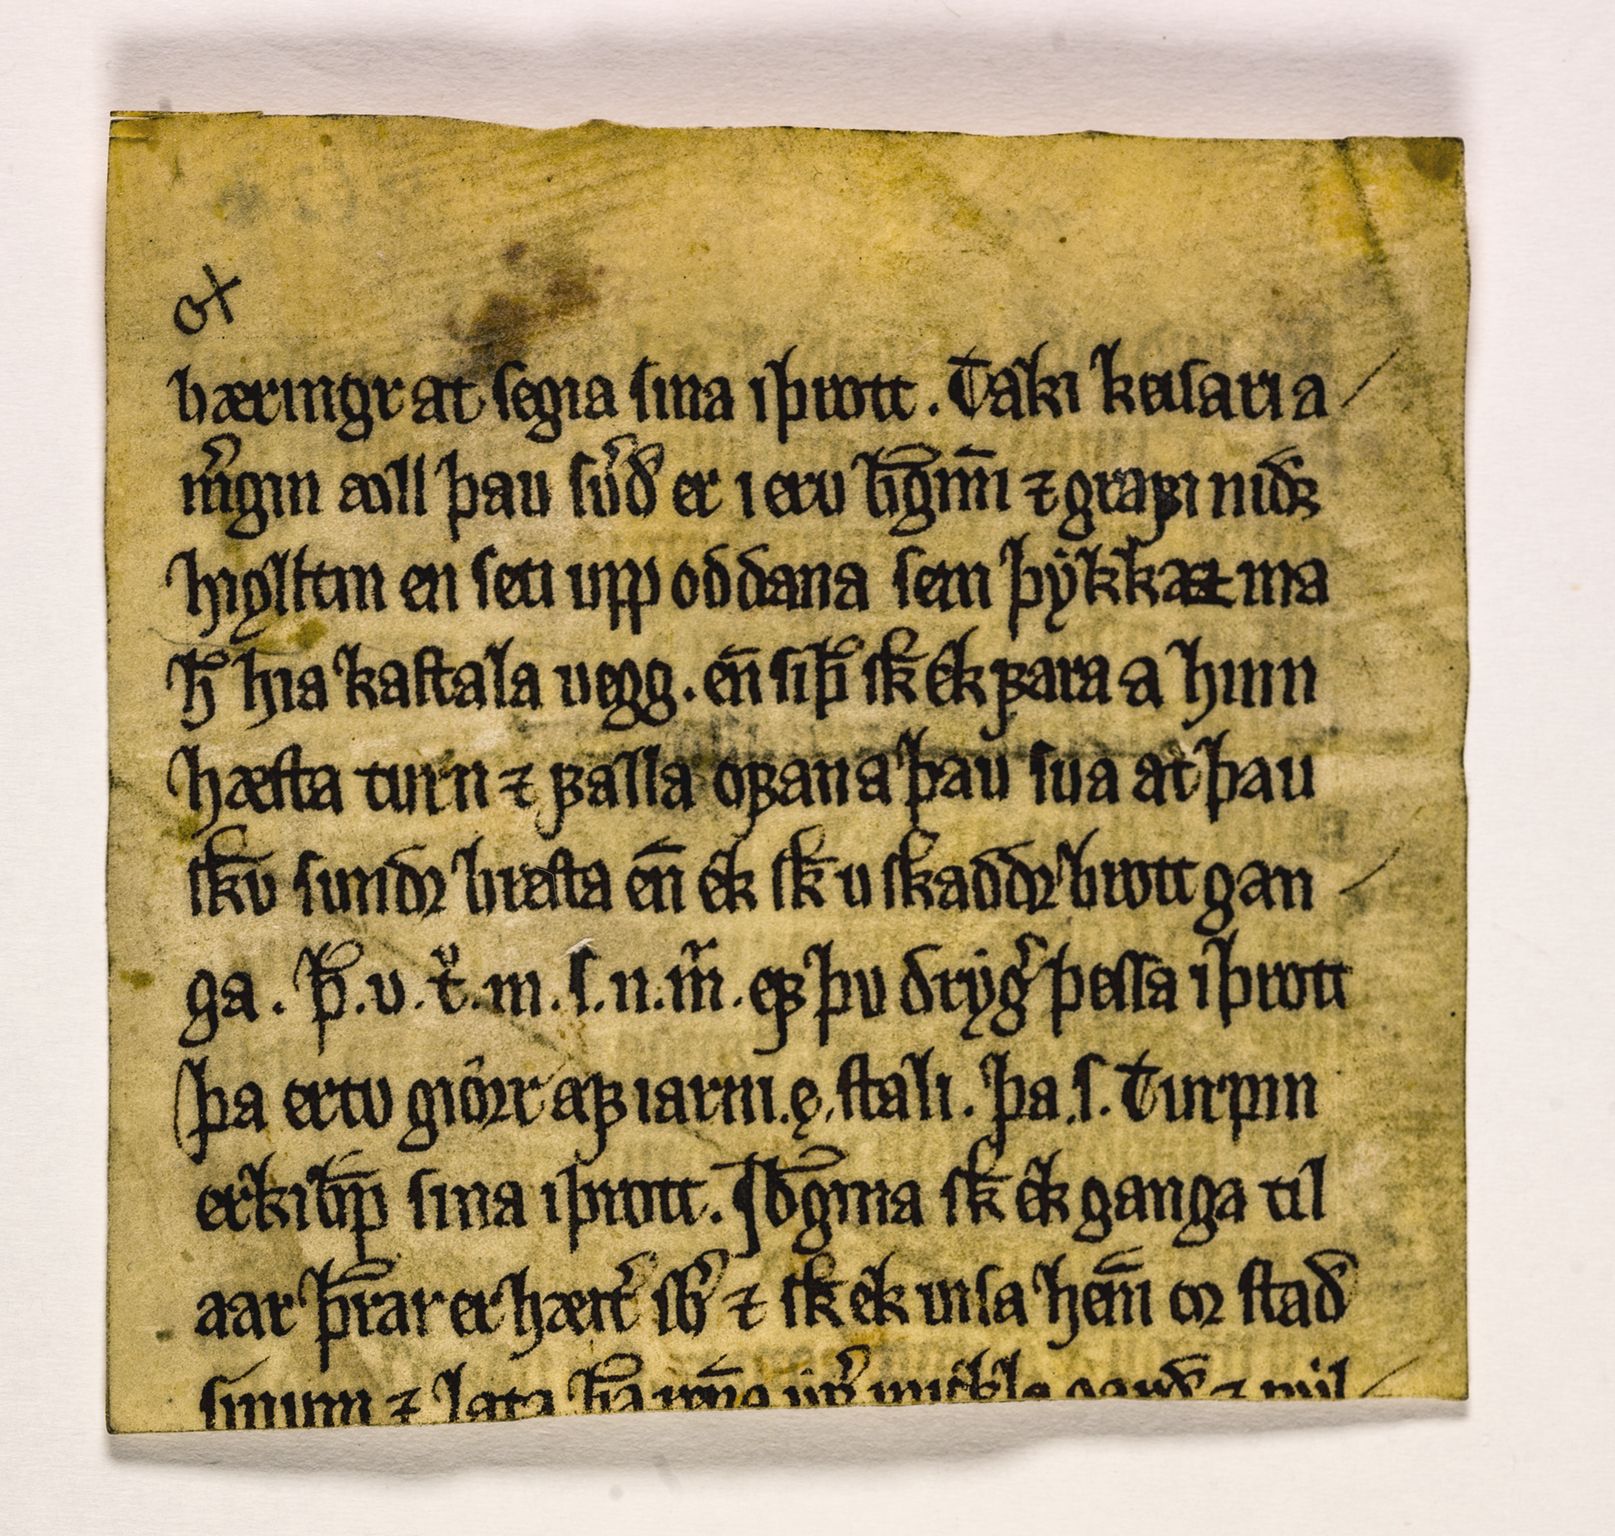 bæringr at segia sina iþrott . Taki keisari a
m͛gin aull þau su͛ð er i eru bͦgīni ⁊ grafi niðꝛ
hiolltin en seti upp oddana sem þẏkkazt ma
ħ hia kastala uegg . en̄ siþ̄ sk̄ ek fara a hinn
hæsta turn ⁊ falla ofan a þau sua at þau
sk̄u sundꝛ bresta en̄ ek sk̄ u skaddꝛ brott gan
ga . þ̄ . u . t͛ . m . s . n . m̄ . ef þu drẏg͛ þessa iþrott
þa ertu giorr af iarni . ę . stali . þa . s . Turpin
erkibp̄ sina iþrott . Sb̄gina sk̄ ek ganga til
aar þr̄ar er hær͛ sb͛ ⁊ sk̄ ek uisa hen̄i oꝛ stað
sinum ⁊ lata ha